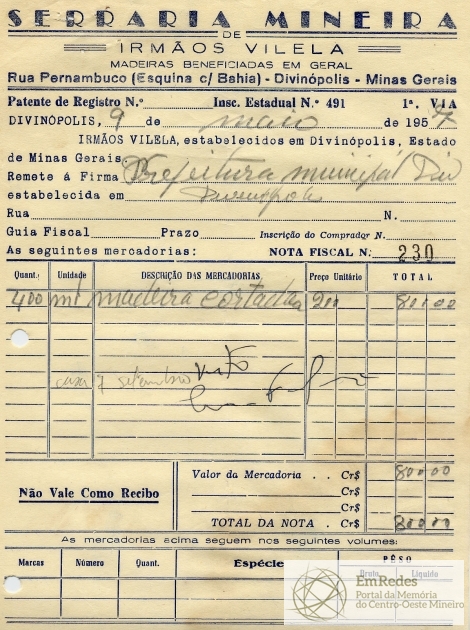 SERRARIA MINEIRA
DE
IRMÃOS VILELA
MADEIRAS BENEFICIADAS EM GERAL
Rua Pernambuco (Esquina c/ Bahia) - Divinópolis - Minas Gerais
Patente de Registro N.º Insc. Estadual N.º 491 1.ª VIA
DIVINÓPOLIS, 9 de maio de 195
IRMÃOS VILELA, estabelecidos em Divinópolis, Estado
de Minas Gerais,
Remete á Firma Prefeitura municipal Div
estabelecida em Divinópolis
Rua N.
Guia Fiscal Prazo Inscrição do Comprador N.
As seguintes mercadorias: NOTA FISCAL N.º 230
Quant. Unidade DESCRIÇÃO DAS MERCADORIAS Preço Unitário TOTAL
400 mt madeira cortada 2,00 800,00
casa 7 setembro Visto
Valor da Mercadoria . Cr$ 800,00
Cr$
Não Vale Como Recibo
Cr$
TOTAL DA NOTA . Cr$ 800,00
As mercadorias acima seguem nos seguintes volumes:
Marcas Número Quant. Espécie PÊSO
Bruto Líquido
EmRedes
Portal da Memória
do Centro-Oeste Mineiro